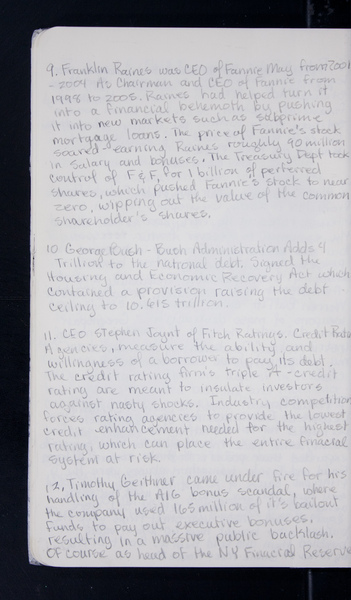 9. Franklin Raines was CEO of Fannie May from 2001
- 2004 As Chairman and CEO of Fannie from
1998 to 2005. Raines had helped turn it
into a financial behemoth by pushing
it into new markets such as subprime
mortgage loans. The price of Fannie's stock
soared - earning Raines roughly 90 million
in salary and bonuses. The Treasury Dept took
control of F & F, for 1 billion of perferred
shares, which pushed Fannie's stock to near
zero, wipping out the value of the common
shareholder's shares.
10. George Bush - Bush Administration Adds 4
Trillion to the national debt. Signed the
Housing and Economic Recovery Act which
contained a provision raising the debt
ceiling to 10.615 trillion.
11. CEO Stephen Joynt of Fitch Ratings. Credit
Agencies, measure the ability and
willingness of a borrower to pay its debt.
The credit rating firm's triple A - credit
rating are meant to insulate investors
against nasty shocks. Industry competition
forces rating agencies to provide the lowest
credit enhancement needed for the highest
rating, which can place the entire finacial
system at risk.
12. Timothy Geithner came under fire for his
handling of the AIG bonus scandal, where
the company used 165 million of it's bailout
funds to pay out executive bonuses,
resulting in a massive public backlash.
Of course as head of the NY Finacial Reserve